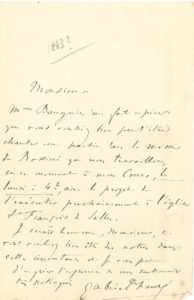 1883?
Monsieur
M. Danquin me fait espérer
que vous voudrez bien peut-être
chanter une partie dans la messe
de Rossini que nous travaillons
en ce moment à mon Cours, le
lundi à 4h avec le projet de
l'exécuter prochainement à l'église
St François de Sales.
Je serais heureux, Monsieur, si
vous vouliez bien être des nôtres dans
cette circonstance et je vous prie
d'agréer l'expression de mes sentiments
distingués
Gabriel Fauré